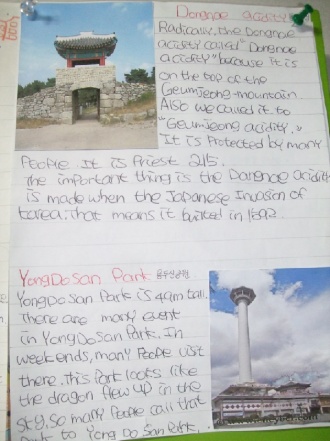 Dongnae acidity
Radically, the Dongnae
acidity called "Dongnae
acidity" because it is
on the top of the
Geumjeong-mountain.
Also we called it to
"Geumjeong acidity."
It is Protected by many
People. It is Priest 215.
The important thing is the Dongnae acidity
is made when the Japanese Invasion of
Korea. That means it builted in 1592.
YongDoSan Park 용두산공원
YongDoSan Park is 49m tall.
There are many event
in YongDoSan Park. In
weekends, many People visit
there. This Park looks like
the dragon flew up in the
sky, so many People call that
Park to Yong Do San Park.